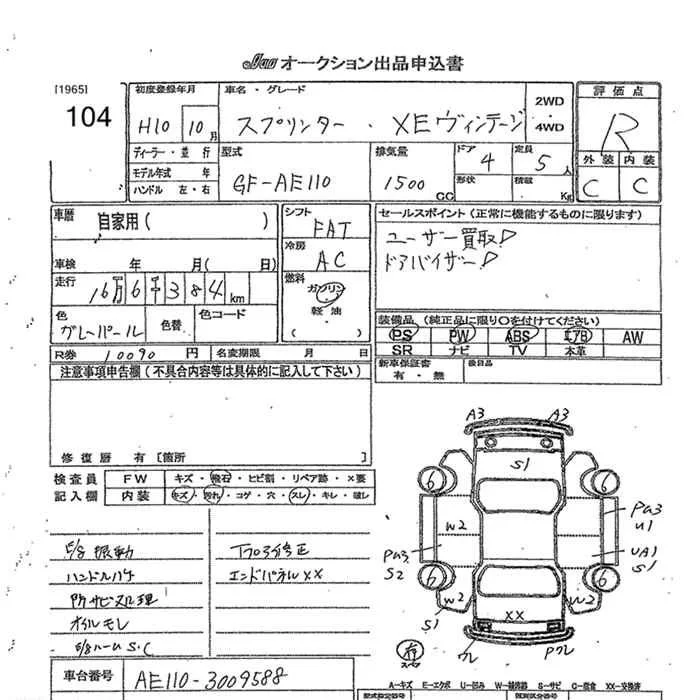 Jaa オークション出品申込書
[1965]
104
初度登録年月
H10 10月
車名・グレード
スプリンター・XEヴィンテージ
2WD
4WD
評価点
R
外装 内装
C C
ディーラー・並行
モデル年式 年
ハンドル 左・右
型式
GF-AE110
排気量
1500 CC
ドア
4
形状
定員
5人
積載
Kg
車歴 自家用( )
シフト
FAT
冷房
AC
セールスポイント(正常に機能するものに限ります)
ユーザー買取!
ドアバイザー!
車検 年 月( 日)
走行
16万6千384km
燃料
ガソリン
軽油
( )
色
グレーパール
色替
色コード
装備品 (純正品に限り○を付けてください)
PS PW ABS エアB AW
SR ナビ TV 本革
R券 10090円
名変期限 月 日
新車保証書
有・無
後日品
注意事項申告欄(不具合内容等は具体的に記入して下さい)
修復歴 有[箇所
検査員
記入欄
FW キズ・飛石・ヒビ割・リペア跡・×要
内装 キズ・汚れ・コゲ・穴・スレ・キレ・破レ
E/g振動
ハンドルハゲ
所サビ処理
オイルモレ
E/gルームS.C
下フロア修正
エンドパネルXX
A3 A3
S1
6 6
W2
Pu3
S2
Pu3
U1
UA1
S1
6 6
W2
W2
S1
S1
XX
ワレ
Pワレ
有
スペア
A=キズ E=エクボ U=凹み W=補修跡 S=サビ C=腐食 XX=交換済
車台番号
AE110-3009588